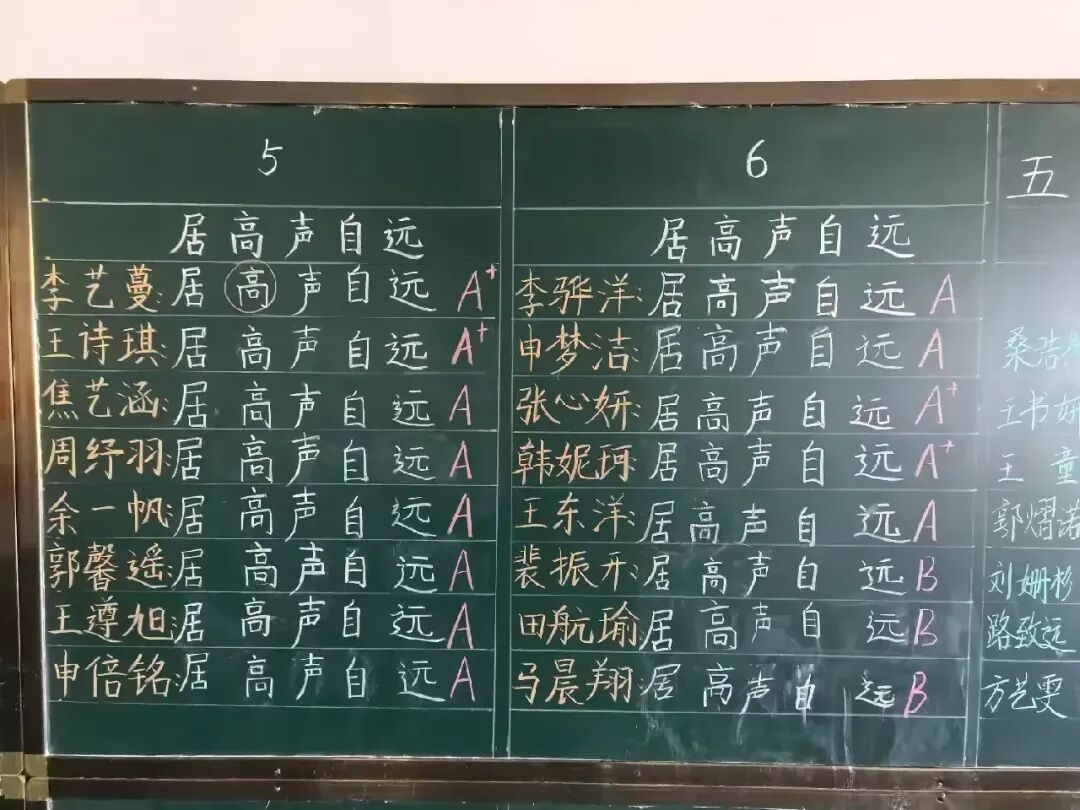 5
居高声自远
李艺蔓:居高声自远 A+
王诗琪:居高声自远 A+
焦艺涵:居高声自远 A
周纾羽:居高声自远 A
余一帆:居高声自远 A
郭馨遥:居高声自远 A
王遵旭:居高声自远 A
申倍铭:居高声自远 A
6
居高声自远
李骅洋:居高声自远 A
申梦洁:居高声自远 A
张心妍:居高声自远 A+
韩妮珂:居高声自远 A+
王东洋:居高声自远 A
裴振开:居高声自远 B
田航瑜:居高声自远 B
马晨翔:居高声自远 B
五
桑浩
王书妍
王童
郭熠诺
刘姗杉
路致远
方艺雯